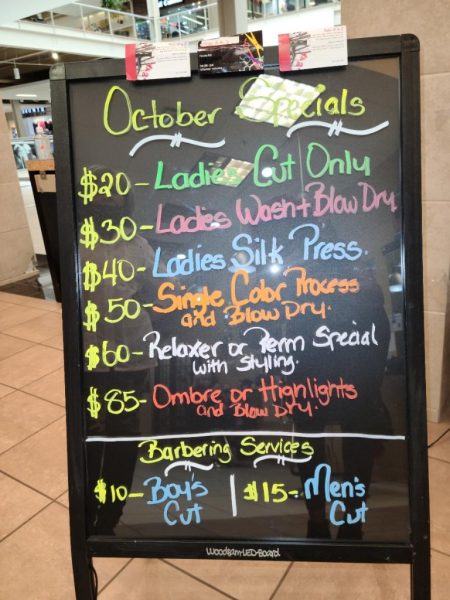 October Specials
$20 - Ladies Cut Only
$30 - Ladies Wash + Blow Dry
$40 - Ladies Silk Press.
$50 - Single Color Process
and Blow Dry.
$60 - Relaxer or Perm Special
with styling.
$85 - Ombre or Highlights
and Blow Dry.
Barbering Services
$10 - Boy's
Cut
$15 - Men's
Cut
Woodsam-LED-Board